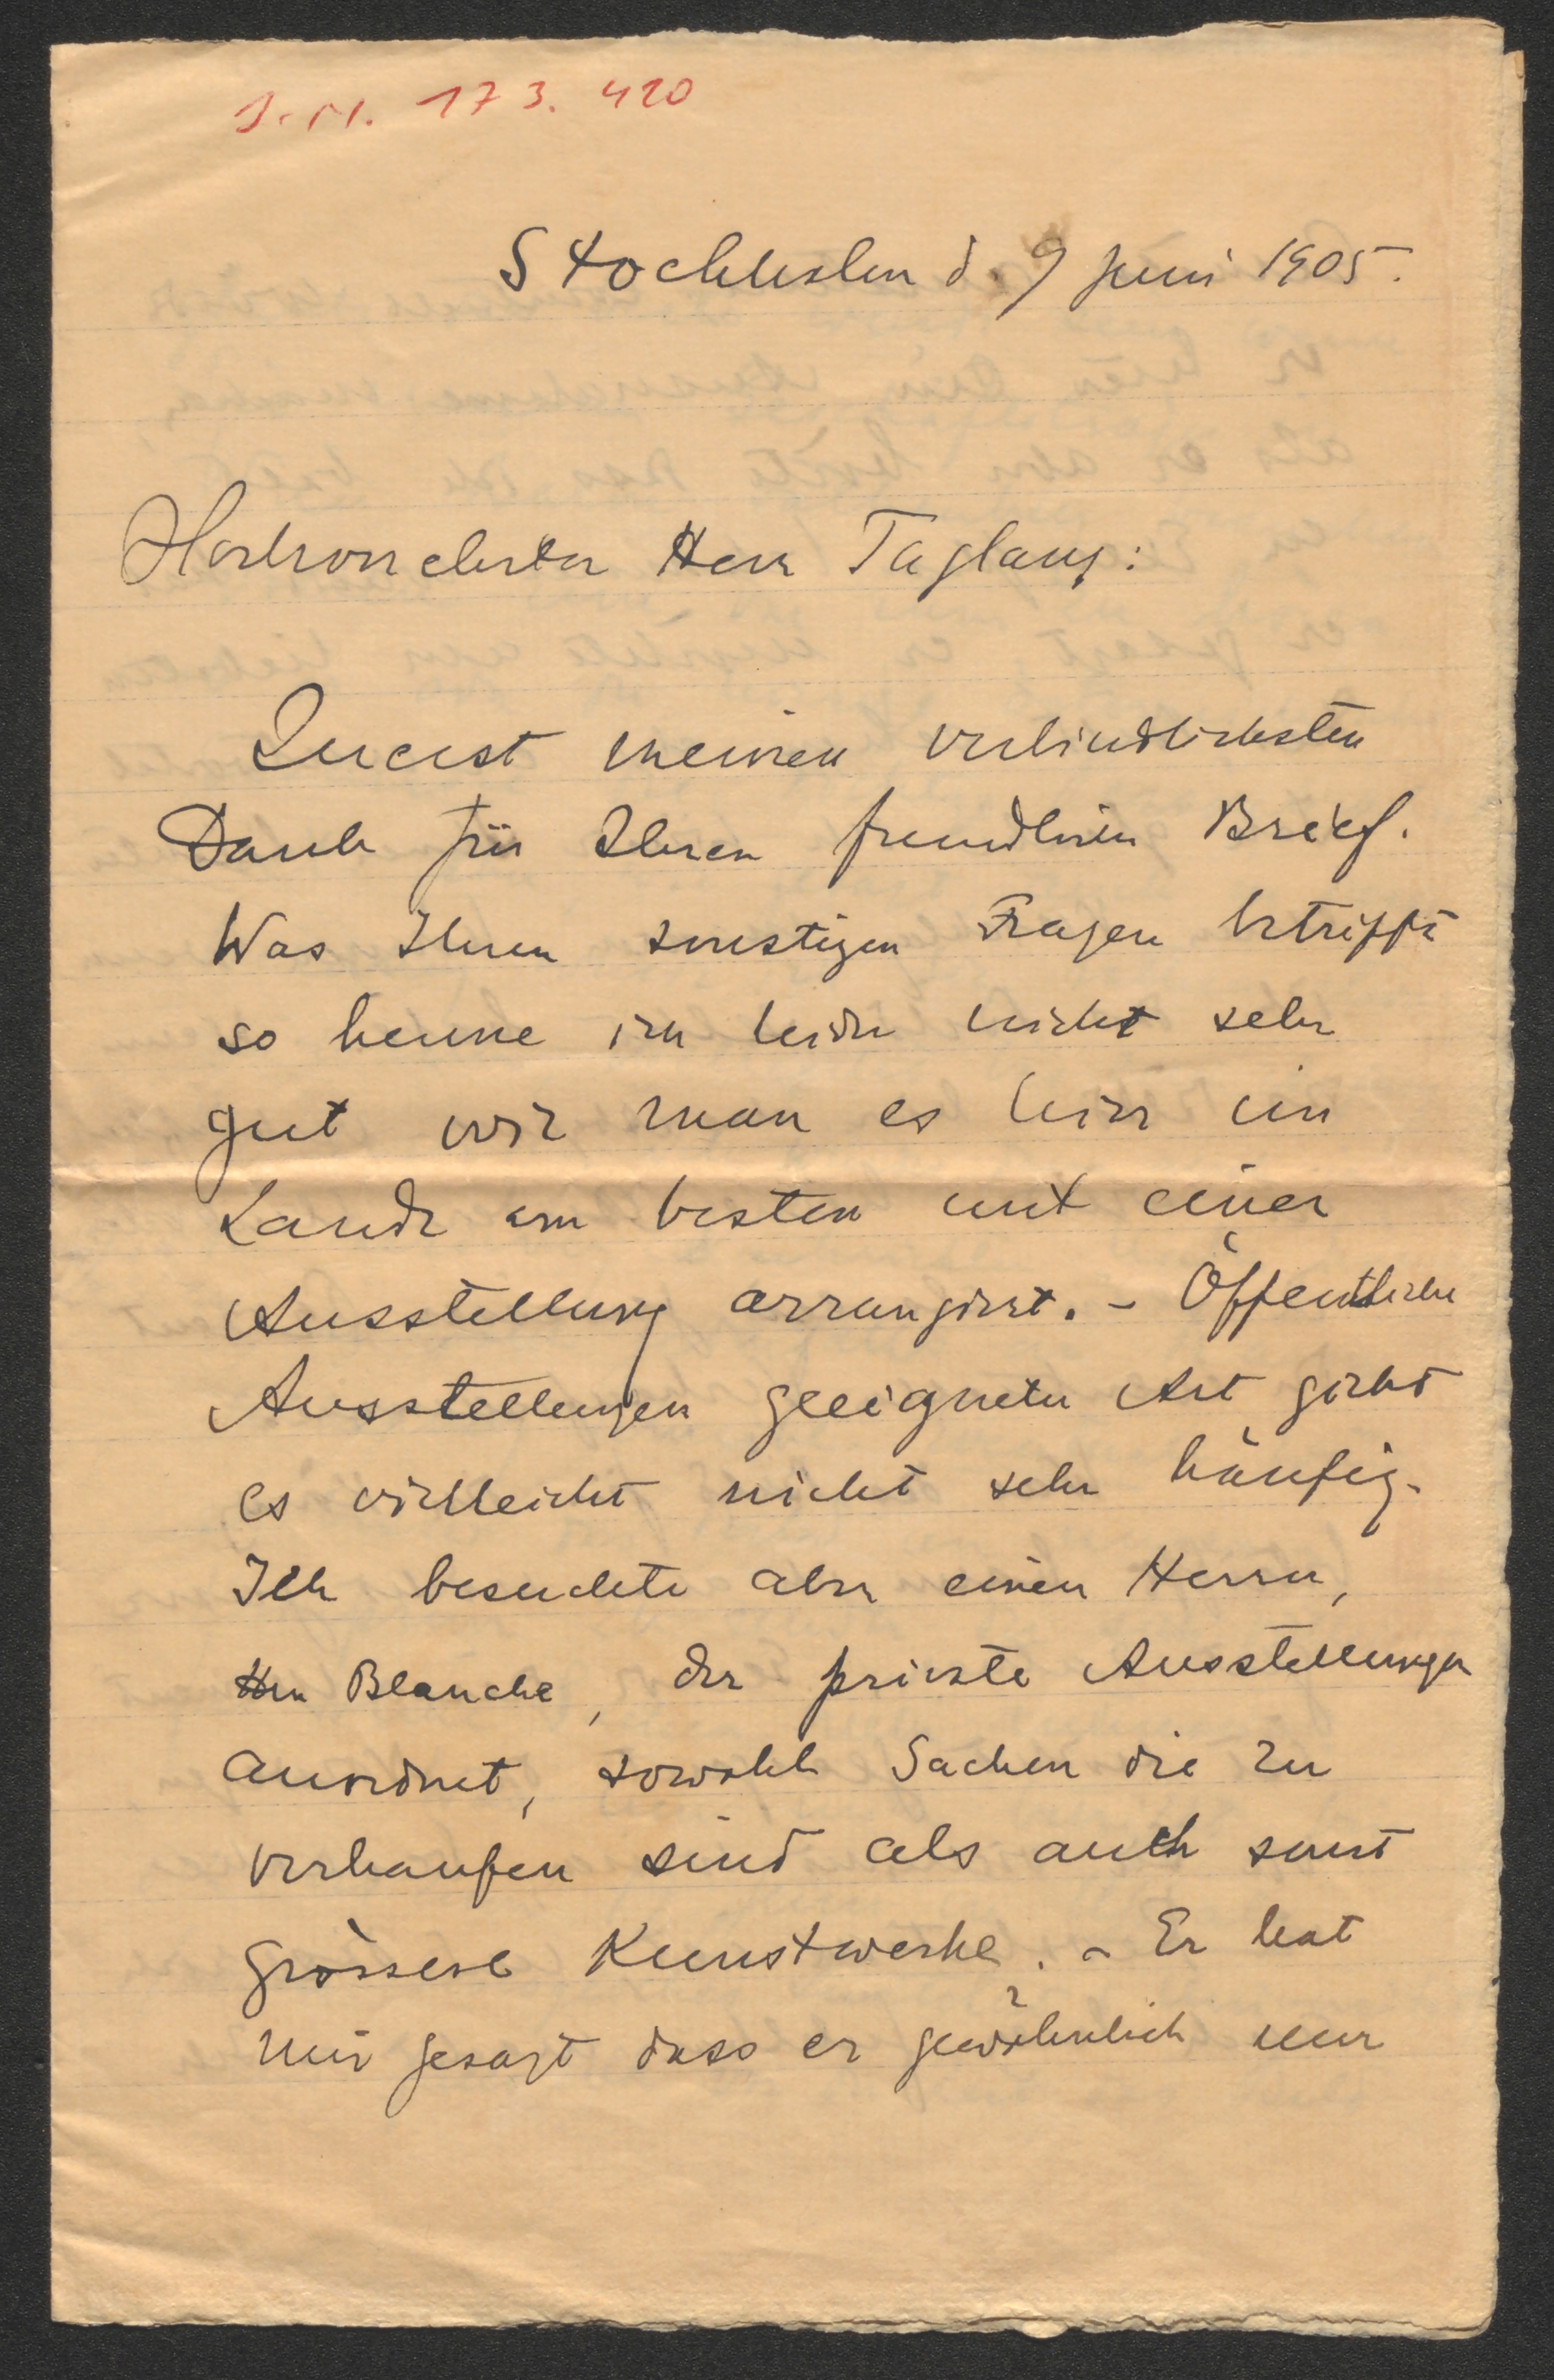 J. N. 173.420
Stockholm d. 9 Juni 1905.
Hochverehrter Herr Taglang:
Zuerst meinen verbindlichsten
Dank für Ihren freundlichen Brief.
Was Ihren sonstigen Fragen betrifft
so kenne ich leider nicht sehr
gut wie man es hier im
Lande am besten mit einer
Ausstellung arrangirt. – Öffentliche
Ausstellungen geeigneter Art giebt
es vielleicht nicht sehr häufig.
Ich besuchte aber einen Herrn,
Hrn Blanche, der private Ausstellungen
anordnet, sowohl Sachen die zu
verkaufen sind als auch sonst
grössere Kunstwerke. – Er hat
mir gesagt dass er gewöhnlich nur